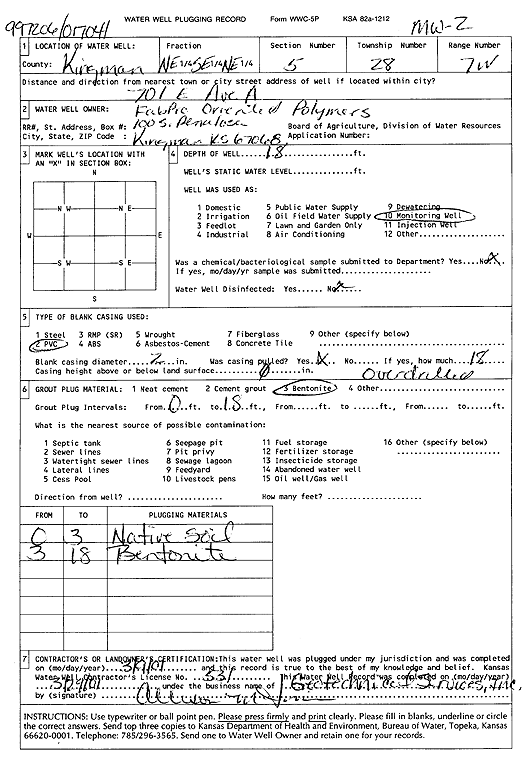 WATER WELL PLUGGING RECORD Form WWC-5P KSA 82a-1212
MW-2
1 LOCATION OF WATER WELL: Fraction Section Number Township Number Range Number
County: Kingman NE 1/4 SE 1/4 NE 1/4 5 28 7W
Distance and direction from nearest town or city street address of well if located within city?
701 E Ave A
2 WATER WELL OWNER: Fabric Oriented Polymers
RR#, St. Address, Box #: 100 S. Penalosa Board of Agriculture, Division of Water Resources
City, State, ZIP Code : Kingman KS 67068 Application Number:
3 MARK WELL'S LOCATION WITH AN "X" IN SECTION BOX:
N
N W N E
W E
S W S E
S
4 DEPTH OF WELL....18....ft.
WELL'S STATIC WATER LEVEL................ft.
WELL WAS USED AS:
1 Domestic 5 Public Water Supply 9 Dewatering
2 Irrigation 6 Oil Field Water Supply 10 Monitoring Well
3 Feedlot 7 Lawn and Garden Only 11 Injection Well
4 Industrial 8 Air Conditioning 12 Other................
Was a chemical/bacteriological sample submitted to Department? Yes....No X
If yes, mo/day/yr sample was submitted....................
Water Well Disinfected: Yes...... No X
5 TYPE OF BLANK CASING USED:
1 Steel 3 RMP (SR) 5 Wrought 7 Fiberglass 9 Other (specify below)
2 PVC 4 ABS 6 Asbestos-Cement 8 Concrete Tile ....................
Blank casing diameter....2....in. Was casing pulled? Yes X No...... If yes, how much...18
Casing height above or below land surface....0....in. Overdrilled
6 GROUT PLUG MATERIAL: 1 Neat cement 2 Cement grout 3 Bentonite 4 Other................
Grout Plug Intervals: From 0 ft. to 18 ft., From......ft. to ......ft., From...... to......ft.
What is the nearest source of possible contamination:
1 Septic tank 6 Seepage pit 11 Fuel storage 16 Other (specify below)
2 Sewer lines 7 Pit privy 12 Fertilizer storage ....................
3 Watertight sewer lines 8 Sewage lagoon 13 Insecticide storage
4 Lateral lines 9 Feedyard 14 Abandoned water well
5 Cess Pool 10 Livestock pens 15 Oil well/Gas well
Direction from well? .................... How many feet? ....................
FROM TO PLUGGING MATERIALS
0 3 Native Soil
3 18 Bentonite
7 CONTRACTOR'S OR LANDOWNER'S CERTIFICATION: This water well was plugged under my jurisdiction and was completed
on (mo/day/year)........ and this record is true to the best of my knowledge and belief. Kansas
Water Well Contractor's License No. ...331... This Water Well Record was completed on (mo/day/year)
under the business name of Geotechnical Services, Inc.
by (signature)
INSTRUCTIONS: Use typewriter or ball point pen. Please press firmly and print clearly. Please fill in blanks, underline or circle
the correct answers. Send top three copies to Kansas Department of Health and Environment, Bureau of Water, Topeka, Kansas
66620-0001. Telephone: 785/296-3565. Send one to Water Well Owner and retain one for your records.